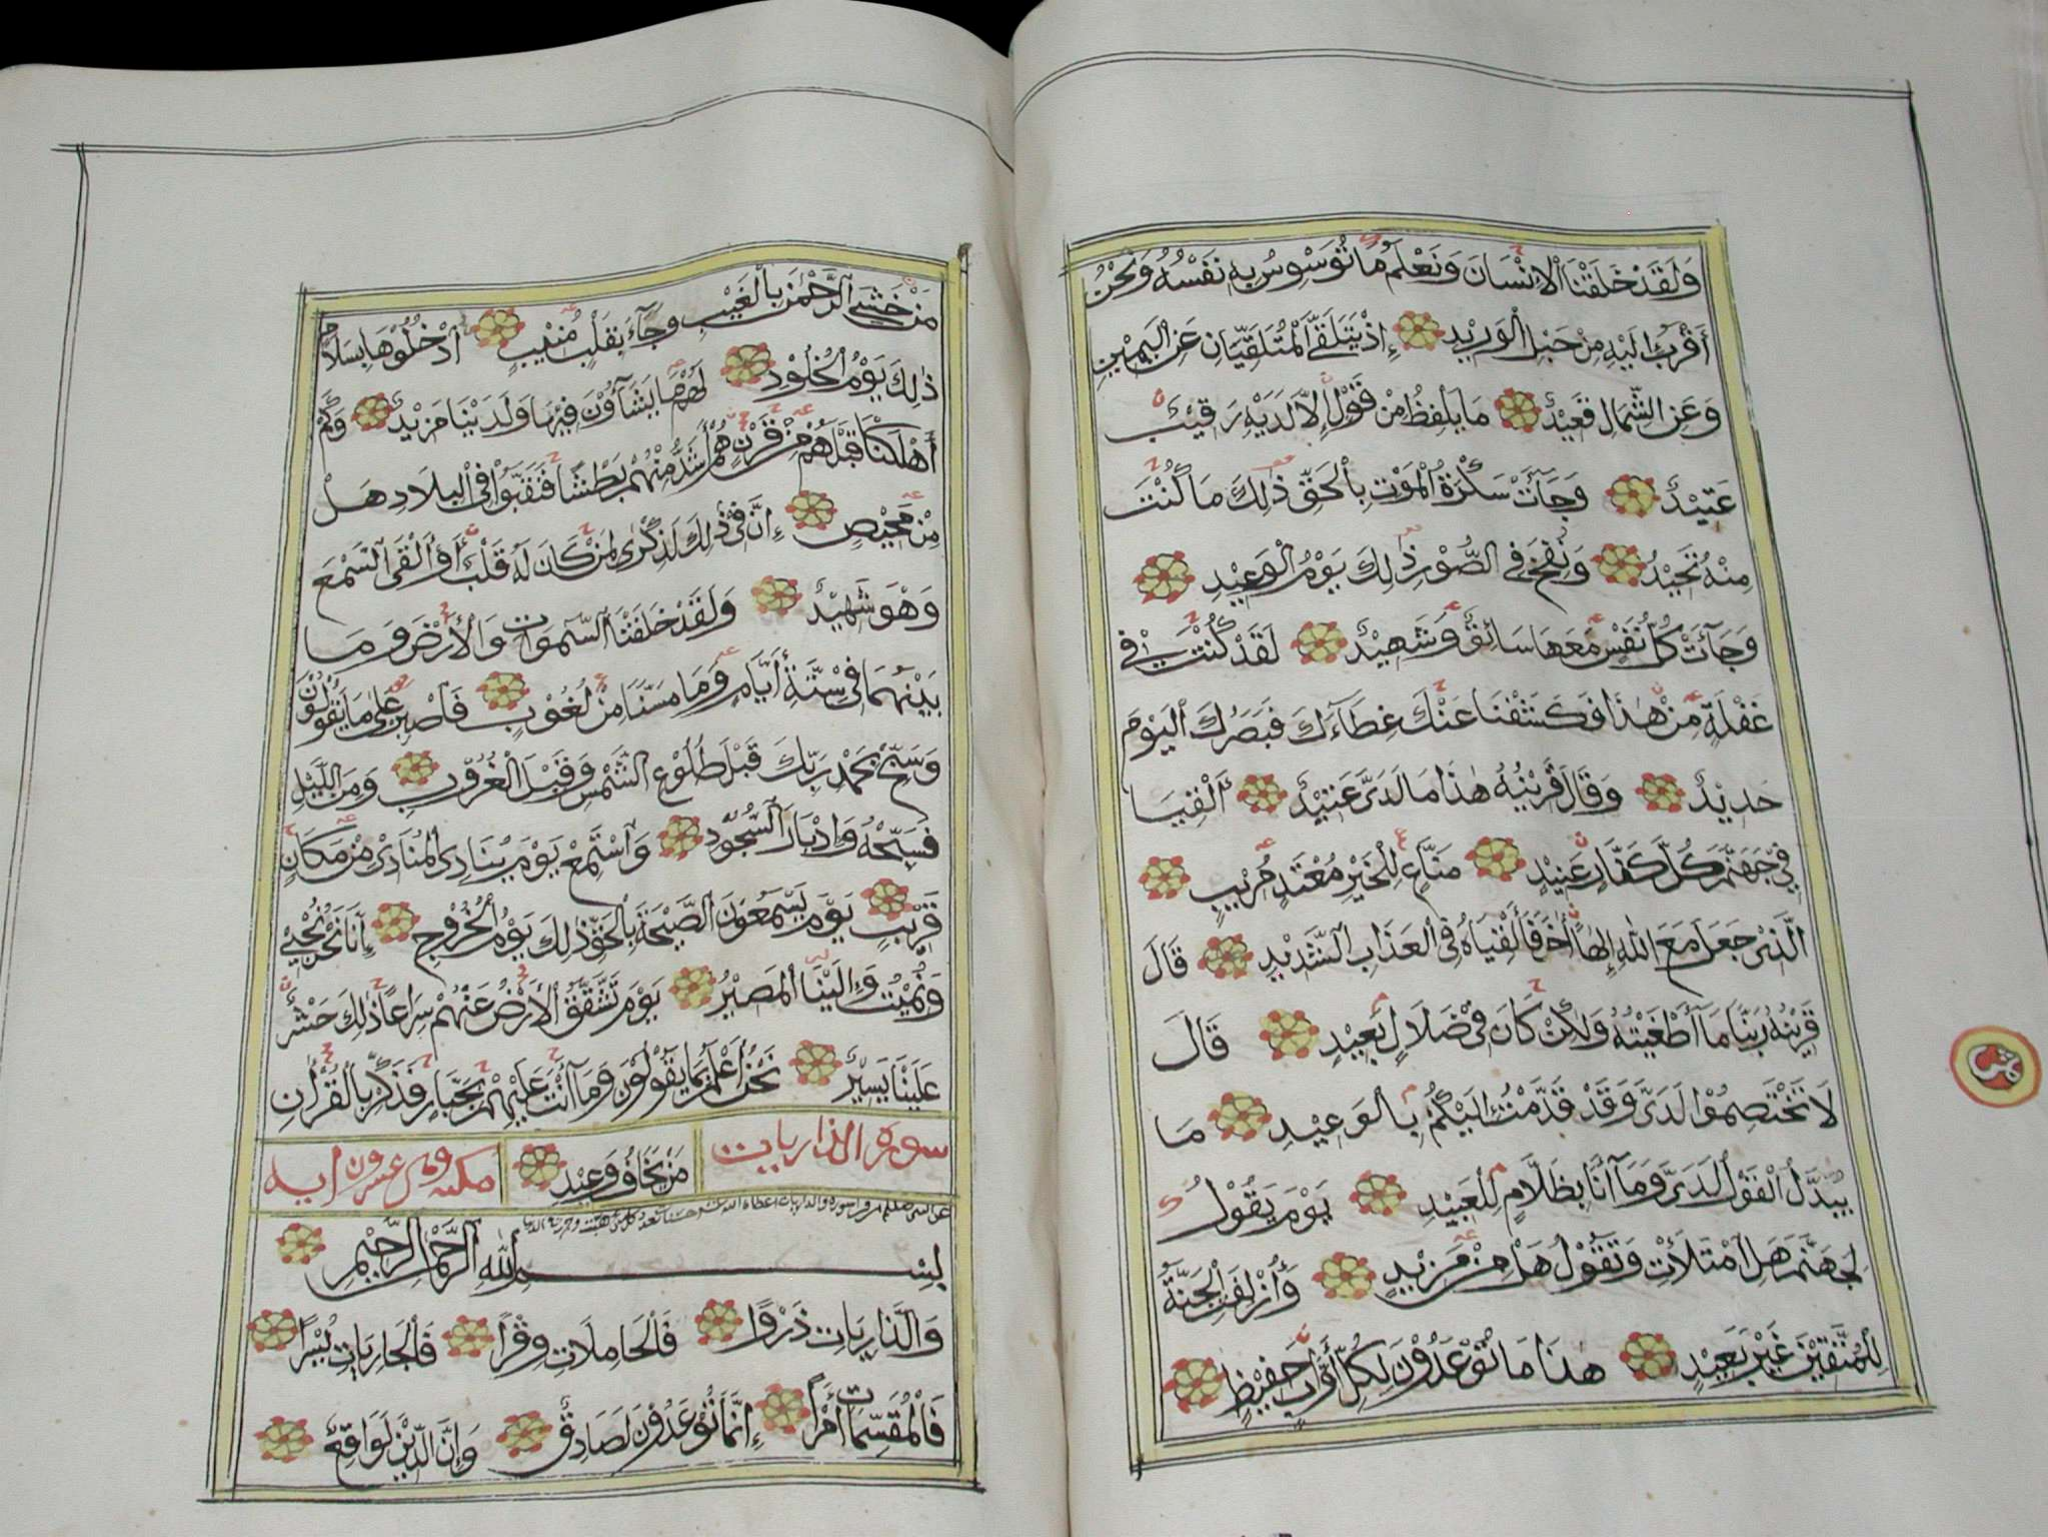 وَلَقَدْ خَلَقْنَا الْإِنْسَانَ وَنَعْلَمُ مَا تُوَسْوِسُ بِهِ نَفْسُهُ وَنَحْنُ
أَقْرَبُ إِلَيْهِ مِنْ حَبْلِ الْوَرِيدِ إِذْ يَتَلَقَّى الْمُتَلَقِّيَانِ عَنِ الْيَمِيْنِ
وَعَنِ الشِّمَالِ قَعِيْدٌ مَا يَلْفِظُ مِنْ قَوْلٍ إِلَّا لَدَيْهِ رَقِيْبٌ
عَتِيْدٌ وَجَآءَتْ سَكْرَةُ الْمَوْتِ بِالْحَقِّ ذٰلِكَ مَا كُنْتَ
مِنْهُ تَحِيْدُ وَنُفِخَ فِي الصُّوْرِ ذٰلِكَ يَوْمُ الْوَعِيْدِ
وَجَآءَتْ كُلُّ نَفْسٍ مَعَهَا سَائِقٌ وَشَهِيْدٌ لَقَدْ كُنْتَ فِي
غَفْلَةٍ مِنْ هٰذَا فَكَشَفْنَا عَنْكَ غِطَآءَكَ فَبَصَرُكَ الْيَوْمَ
حَدِيْدٌ وَقَالَ قَرِيْنُهُ هٰذَا مَا لَدَيَّ عَتِيْدٌ أَلْقِيَا
فِي جَهَنَّمَ كُلَّ كَفَّارٍ عَنِيْدٍ مَنَّاعٍ لِلْخَيْرِ مُعْتَدٍ مُرِيْبٍ
الَّذِيْ جَعَلَ مَعَ اللهِ إِلٰهًا أٰخَرَ فَأَلْقِيَاهُ فِي الْعَذَابِ الشَّدِيْدِ قَالَ
قَرِيْنُهُ رَبَّنَا مَا أَطْغَيْتُهُ وَلٰكِنْ كَانَ فِيْ ضَلَالٍ بَعِيْدٍ قَالَ
لَا تَخْتَصِمُوْا لَدَيَّ وَقَدْ قَدَّمْتُ إِلَيْكُمْ بِالْوَعِيْدِ مَا
يُبَدَّلُ الْقَوْلُ لَدَيَّ وَمَآ أَنَا بِظَلَّامٍ لِلْعَبِيْدِ يَوْمَ يَقُوْلُ
لِجَهَنَّمَ هَلِ امْتَلَأْتِ وَتَقُوْلُ هَلْ مِنْ مَزِيْدٍ وَأُزْلِفَتِ الْجَنَّةُ
لِلْمُتَّقِيْنَ غَيْرَ بَعِيْدٍ هٰذَا مَا تُوْعَدُوْنَ لِكُلِّ أَوَّابٍ حَفِيْظٍ
مَنْ خَشِيَ الرَّحْمٰنَ بِالْغَيْبِ وَجَآءَ بِقَلْبٍ مُنِيْبٍ اُدْخُلُوْهَا بِسَلَامٍ
ذٰلِكَ يَوْمُ الْخُلُوْدِ لَهُمْ مَا يَشَآؤُنَ فِيْهَا وَلَدَيْنَا مَزِيْدٌ وَكَمْ
أَهْلَكْنَا قَبْلَهُمْ مِنْ قَرْنٍ هُمْ أَشَدُّ مِنْهُمْ بَطْشًا فَنَقَّبُوْا فِي الْبِلَادِ هَلْ
مِنْ مَحِيْصٍ إِنَّ فِيْ ذٰلِكَ لَذِكْرٰى لِمَنْ كَانَ لَهُ قَلْبٌ أَوْ أَلْقَى السَّمْعَ
وَهُوَ شَهِيْدٌ وَلَقَدْ خَلَقْنَا السَّمٰوَاتِ وَالْأَرْضَ وَمَا
بَيْنَهُمَا فِيْ سِتَّةِ أَيَّامٍ وَمَا مَسَّنَا مِنْ لُغُوْبٍ فَاصْبِرْ عَلٰى مَا يَقُوْلُوْنَ
وَسَبِّحْ بِحَمْدِ رَبِّكَ قَبْلَ طُلُوْعِ الشَّمْسِ وَقَبْلَ الْغُرُوْبِ وَمِنَ اللَّيْلِ
فَسَبِّحْهُ وَإِدْبَارَ السُّجُوْدِ وَاسْتَمِعْ يَوْمَ يُنَادِى الْمُنَادِيْ مِنْ مَكَانٍ
قَرِيْبٍ يَوْمَ يَسْمَعُوْنَ الصَّيْحَةَ بِالْحَقِّ ذٰلِكَ يَوْمُ الْخُرُوْجِ إِنَّا نَحْنُ نُحْيِيْ
وَنُمِيْتُ وَإِلَيْنَا الْمَصِيْرُ يَوْمَ تَشَقَّقُ الْأَرْضُ عَنْهُمْ سِرَاعًا ذٰلِكَ حَشْرٌ
عَلَيْنَا يَسِيْرٌ نَحْنُ أَعْلَمُ بِمَا يَقُوْلُوْنَ وَمَآ أَنْتَ عَلَيْهِمْ بِجَبَّارٍ فَذَكِّرْ بِالْقُرْاٰنِ
سوره الذاريات مَنْ يَخَافُ وَعِيْدِ مكيه وهى عشرون ايه
بِسْمِ اللهِ الرَّحْمٰنِ الرَّحِيْمِ
وَالذَّارِيَاتِ ذَرْوًا فَالْحَامِلَاتِ وِقْرًا فَالْجَارِيَاتِ يُسْرًا
فَالْمُقَسِّمَاتِ أَمْرًا إِنَّمَا تُوْعَدُوْنَ لَصَادِقٌ وَإِنَّ الدِّيْنَ لَوَاقِعٌ